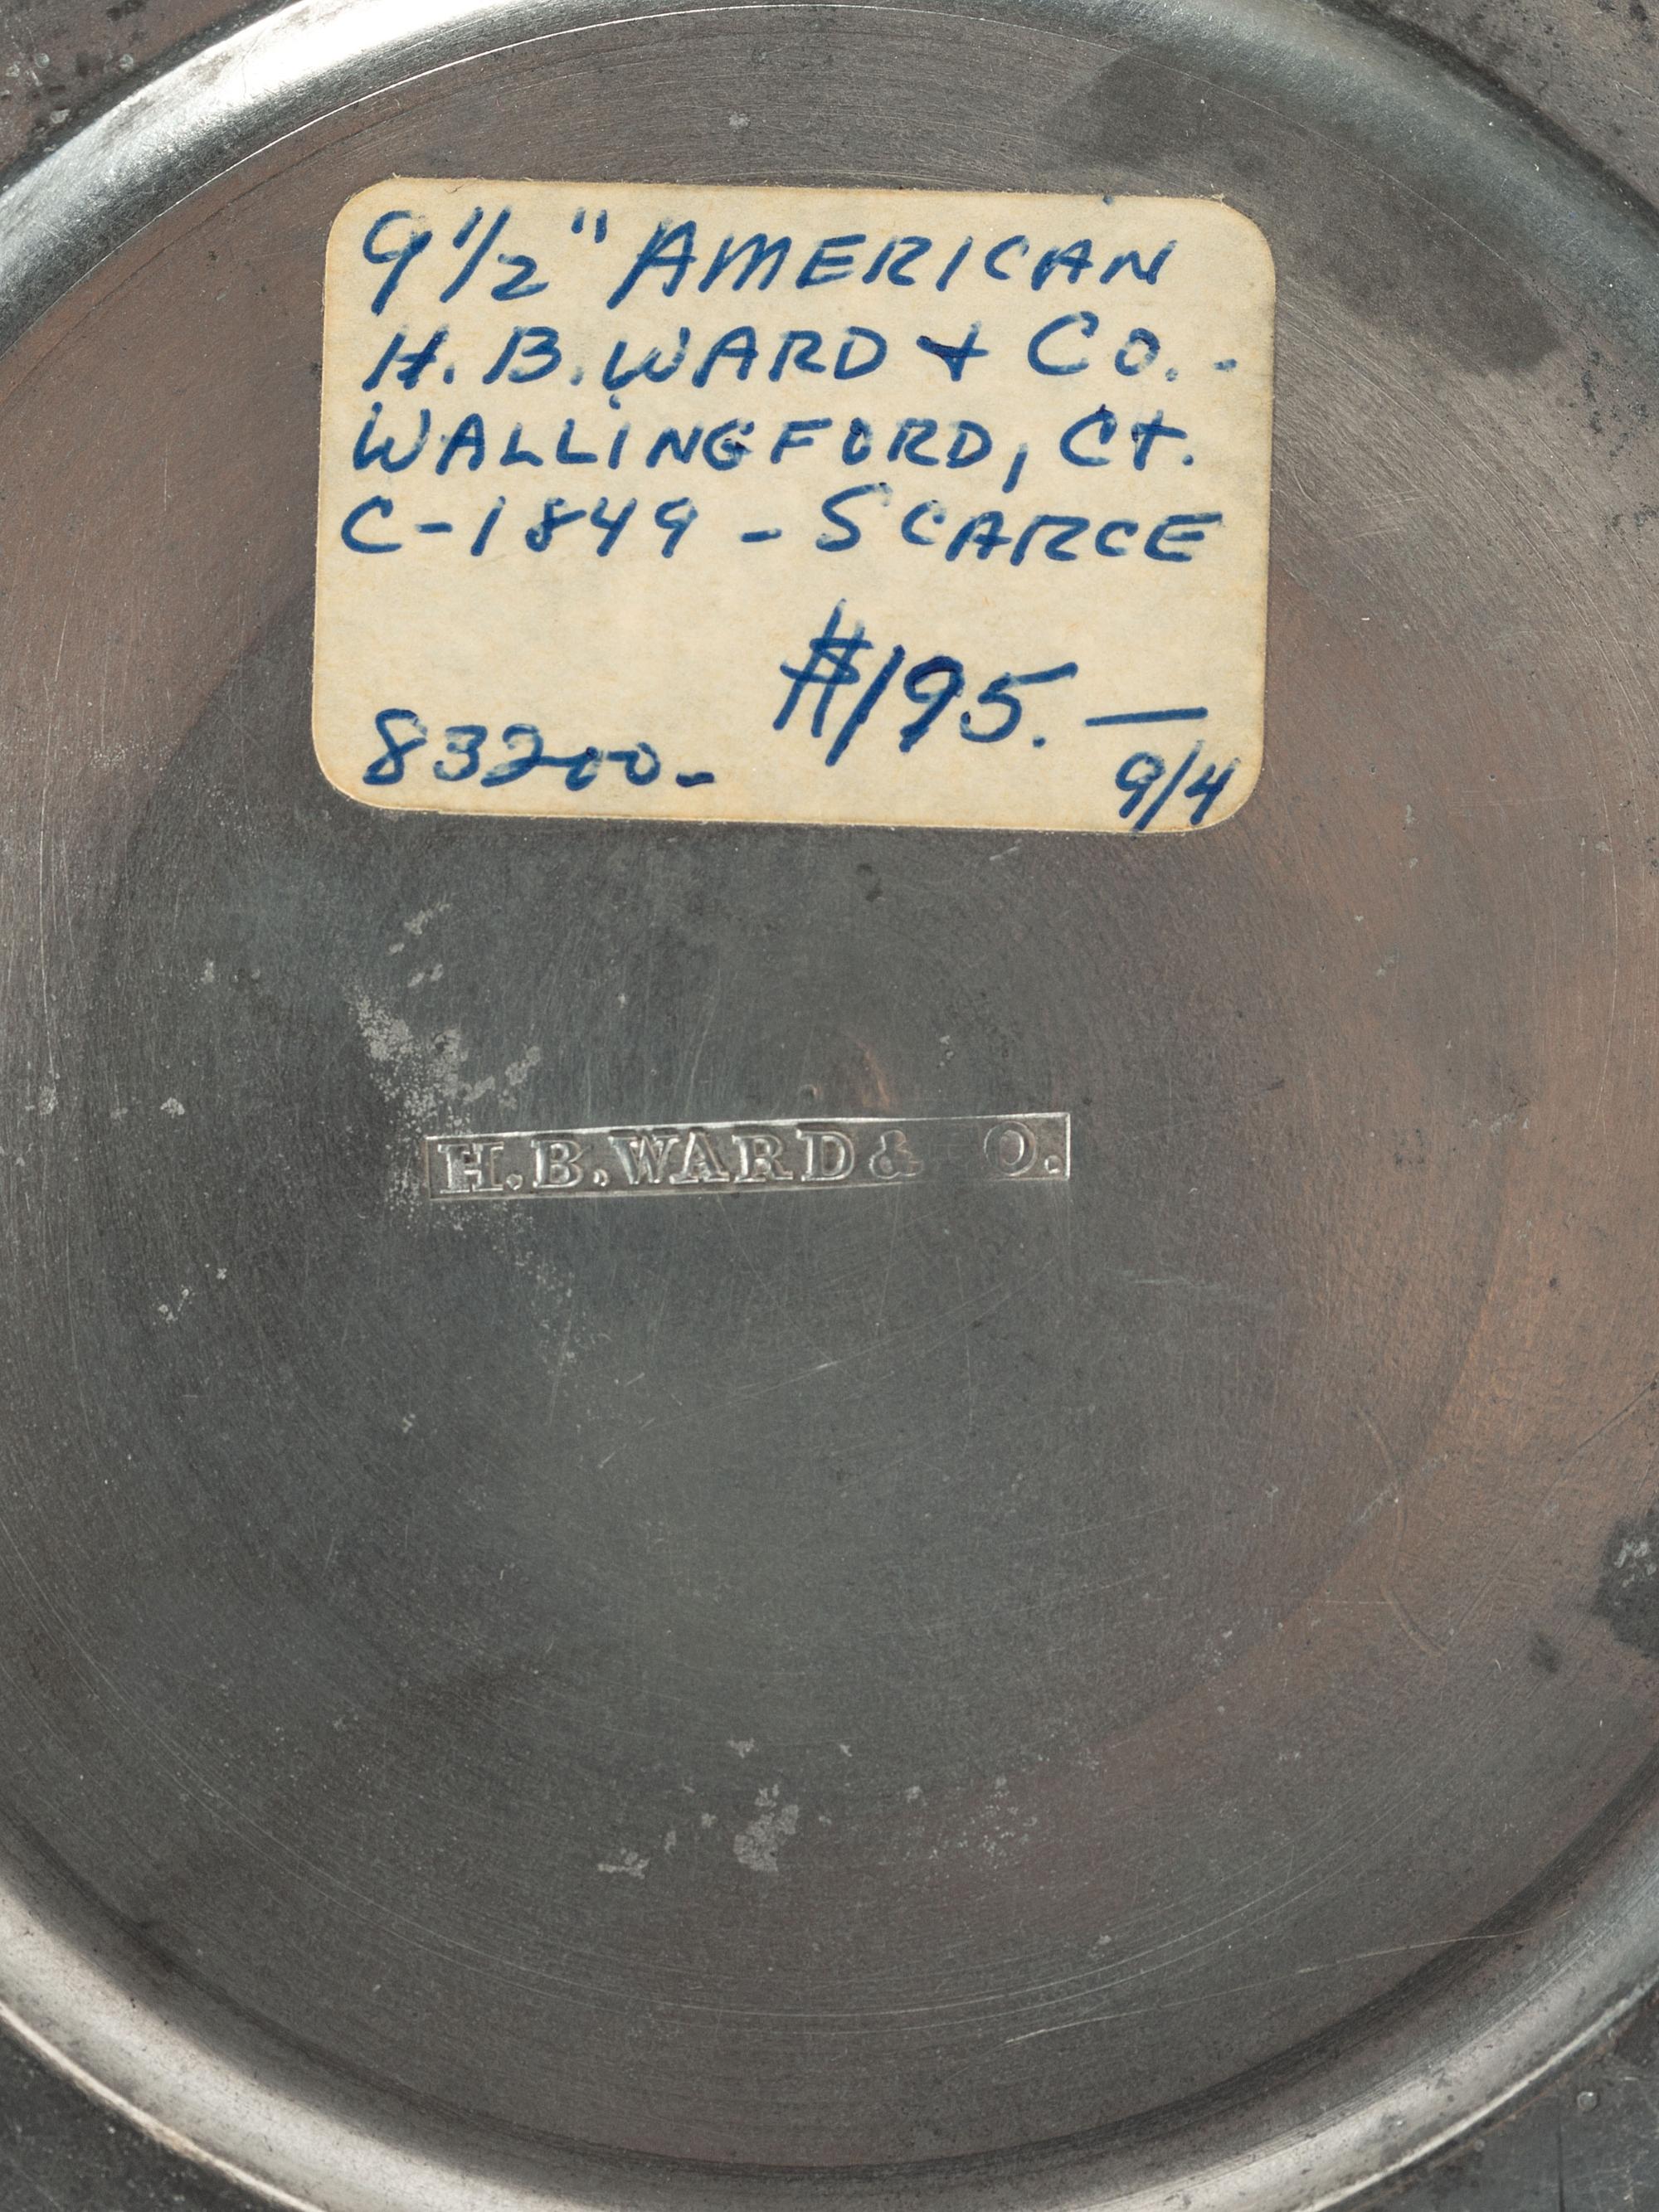 9 1/2" AMERICAN
H.B. WARD + CO. -
WALLINGFORD, Ct.
C-1849 - SCARCE
$195.—
83200-
9/4
H.B.WARD& O.